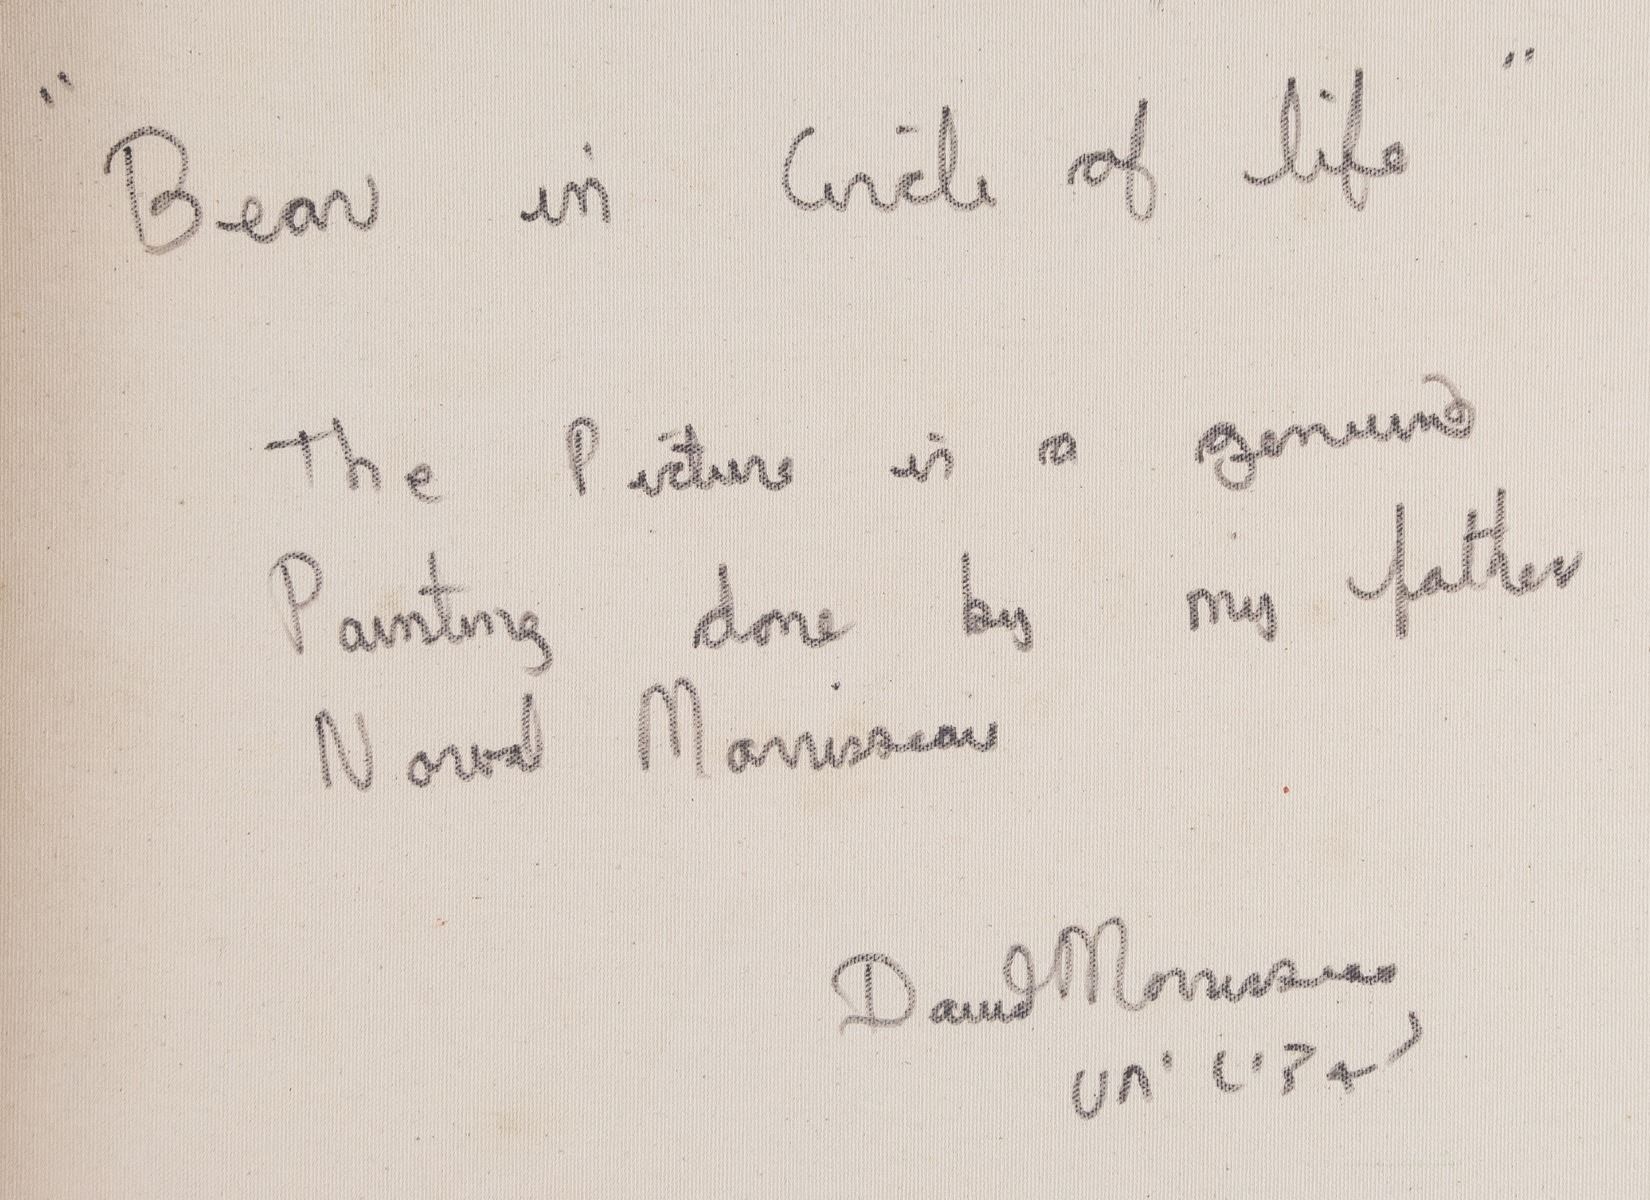 "Bear in Circle of life"
The Picture is a genuine
Painting done by my father
Norval Morrisseau
David Morrisseau